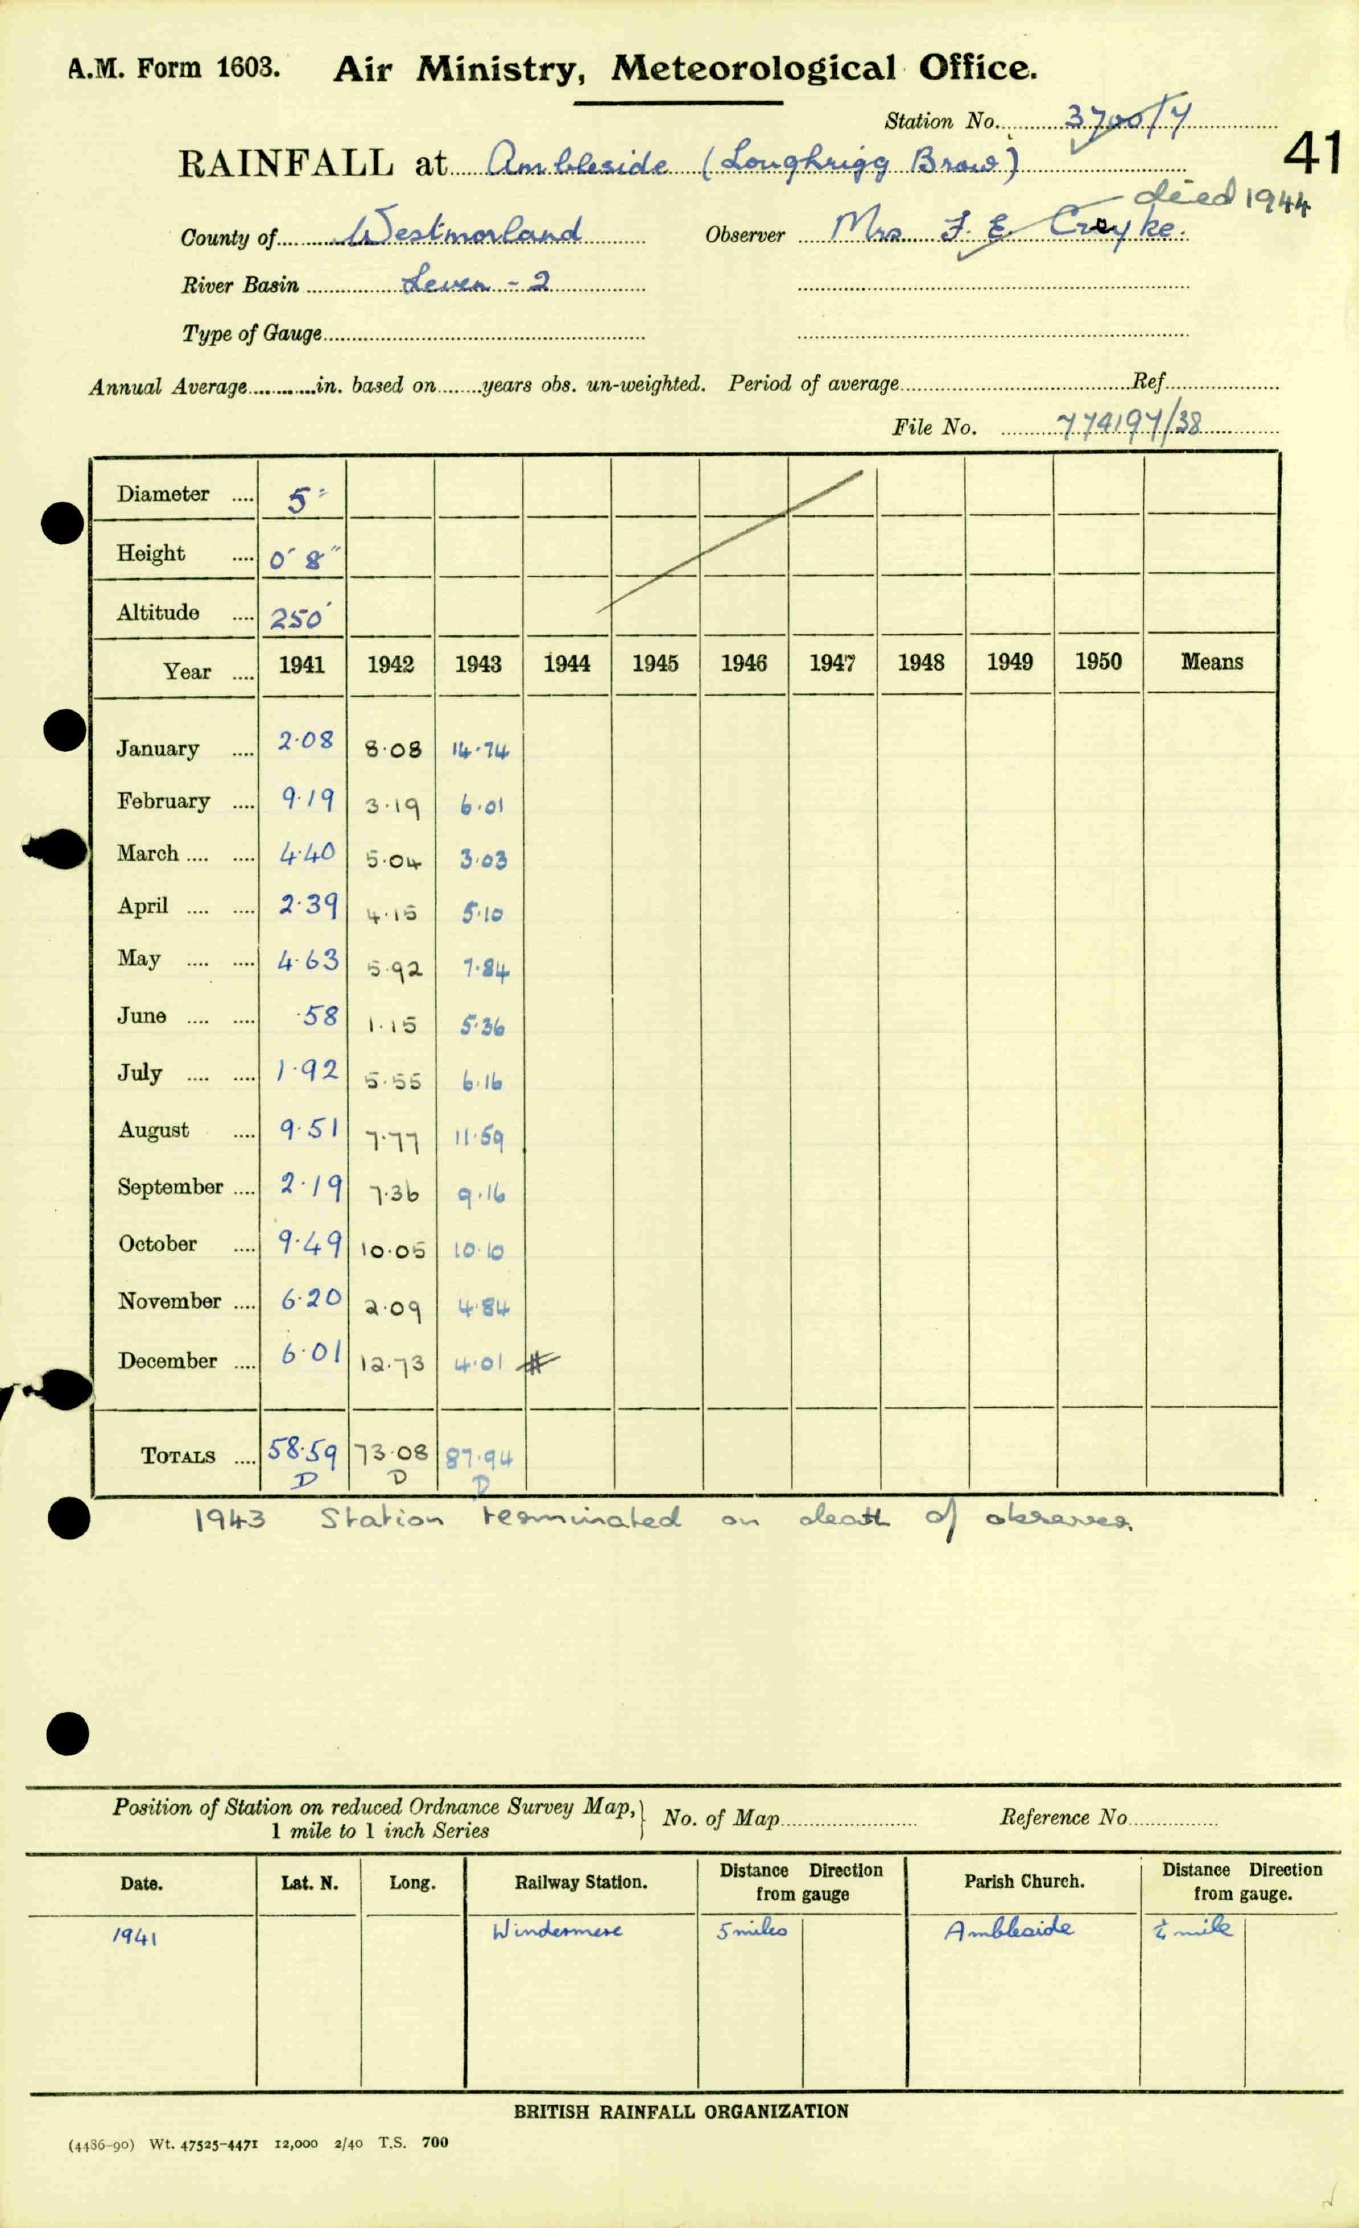 A.M. Form 1603. Air Ministry, Meteorological Office.
Station No. 3700/7
41
RAINFALL at Ambleside (Loughrigg Brow)
died 1944
County of Westmorland Observer Mrs F. E. Creyke.
River Basin Leven - 2
Type of Gauge
Annual Average in. based on years obs. un-weighted. Period of average Ref
File No. 774197/38
Diameter .... 5"
Height .... 0' 8"
Altitude .... 250'
Year .... 1941 1942 1943 1944 1945 1946 1947 1948 1949 1950 Means
January .... 2.08 8.08 14.74
February .... 9.19 3.19 6.01
March .... .... 4.40 5.04 3.03
April .... .... 2.39 4.15 5.10
May .... .... 4.63 5.92 7.84
June .... .... .58 1.15 5.36
July .... .... 1.92 5.55 6.16
August .... 9.51 7.77 11.59
September .... 2.19 7.36 9.16
October .... 9.49 10.05 10.10
November .... 6.20 2.09 4.84
December .... 6.01 12.73 4.01 #
TOTALS .... 58.59 73.08 87.94
D D D
1943 Station terminated on death of observer.
Position of Station on reduced Ordnance Survey Map, } No. of Map Reference No
1 mile to 1 inch Series
Date. Lat. N. Long. Railway Station. Distance Direction from gauge Parish Church. Distance Direction from gauge.
1941 Windermere 5 miles Ambleside mile
BRITISH RAINFALL ORGANIZATION
(4486-90) Wt. 47525-4471 12,000 2/40 T.S. 700